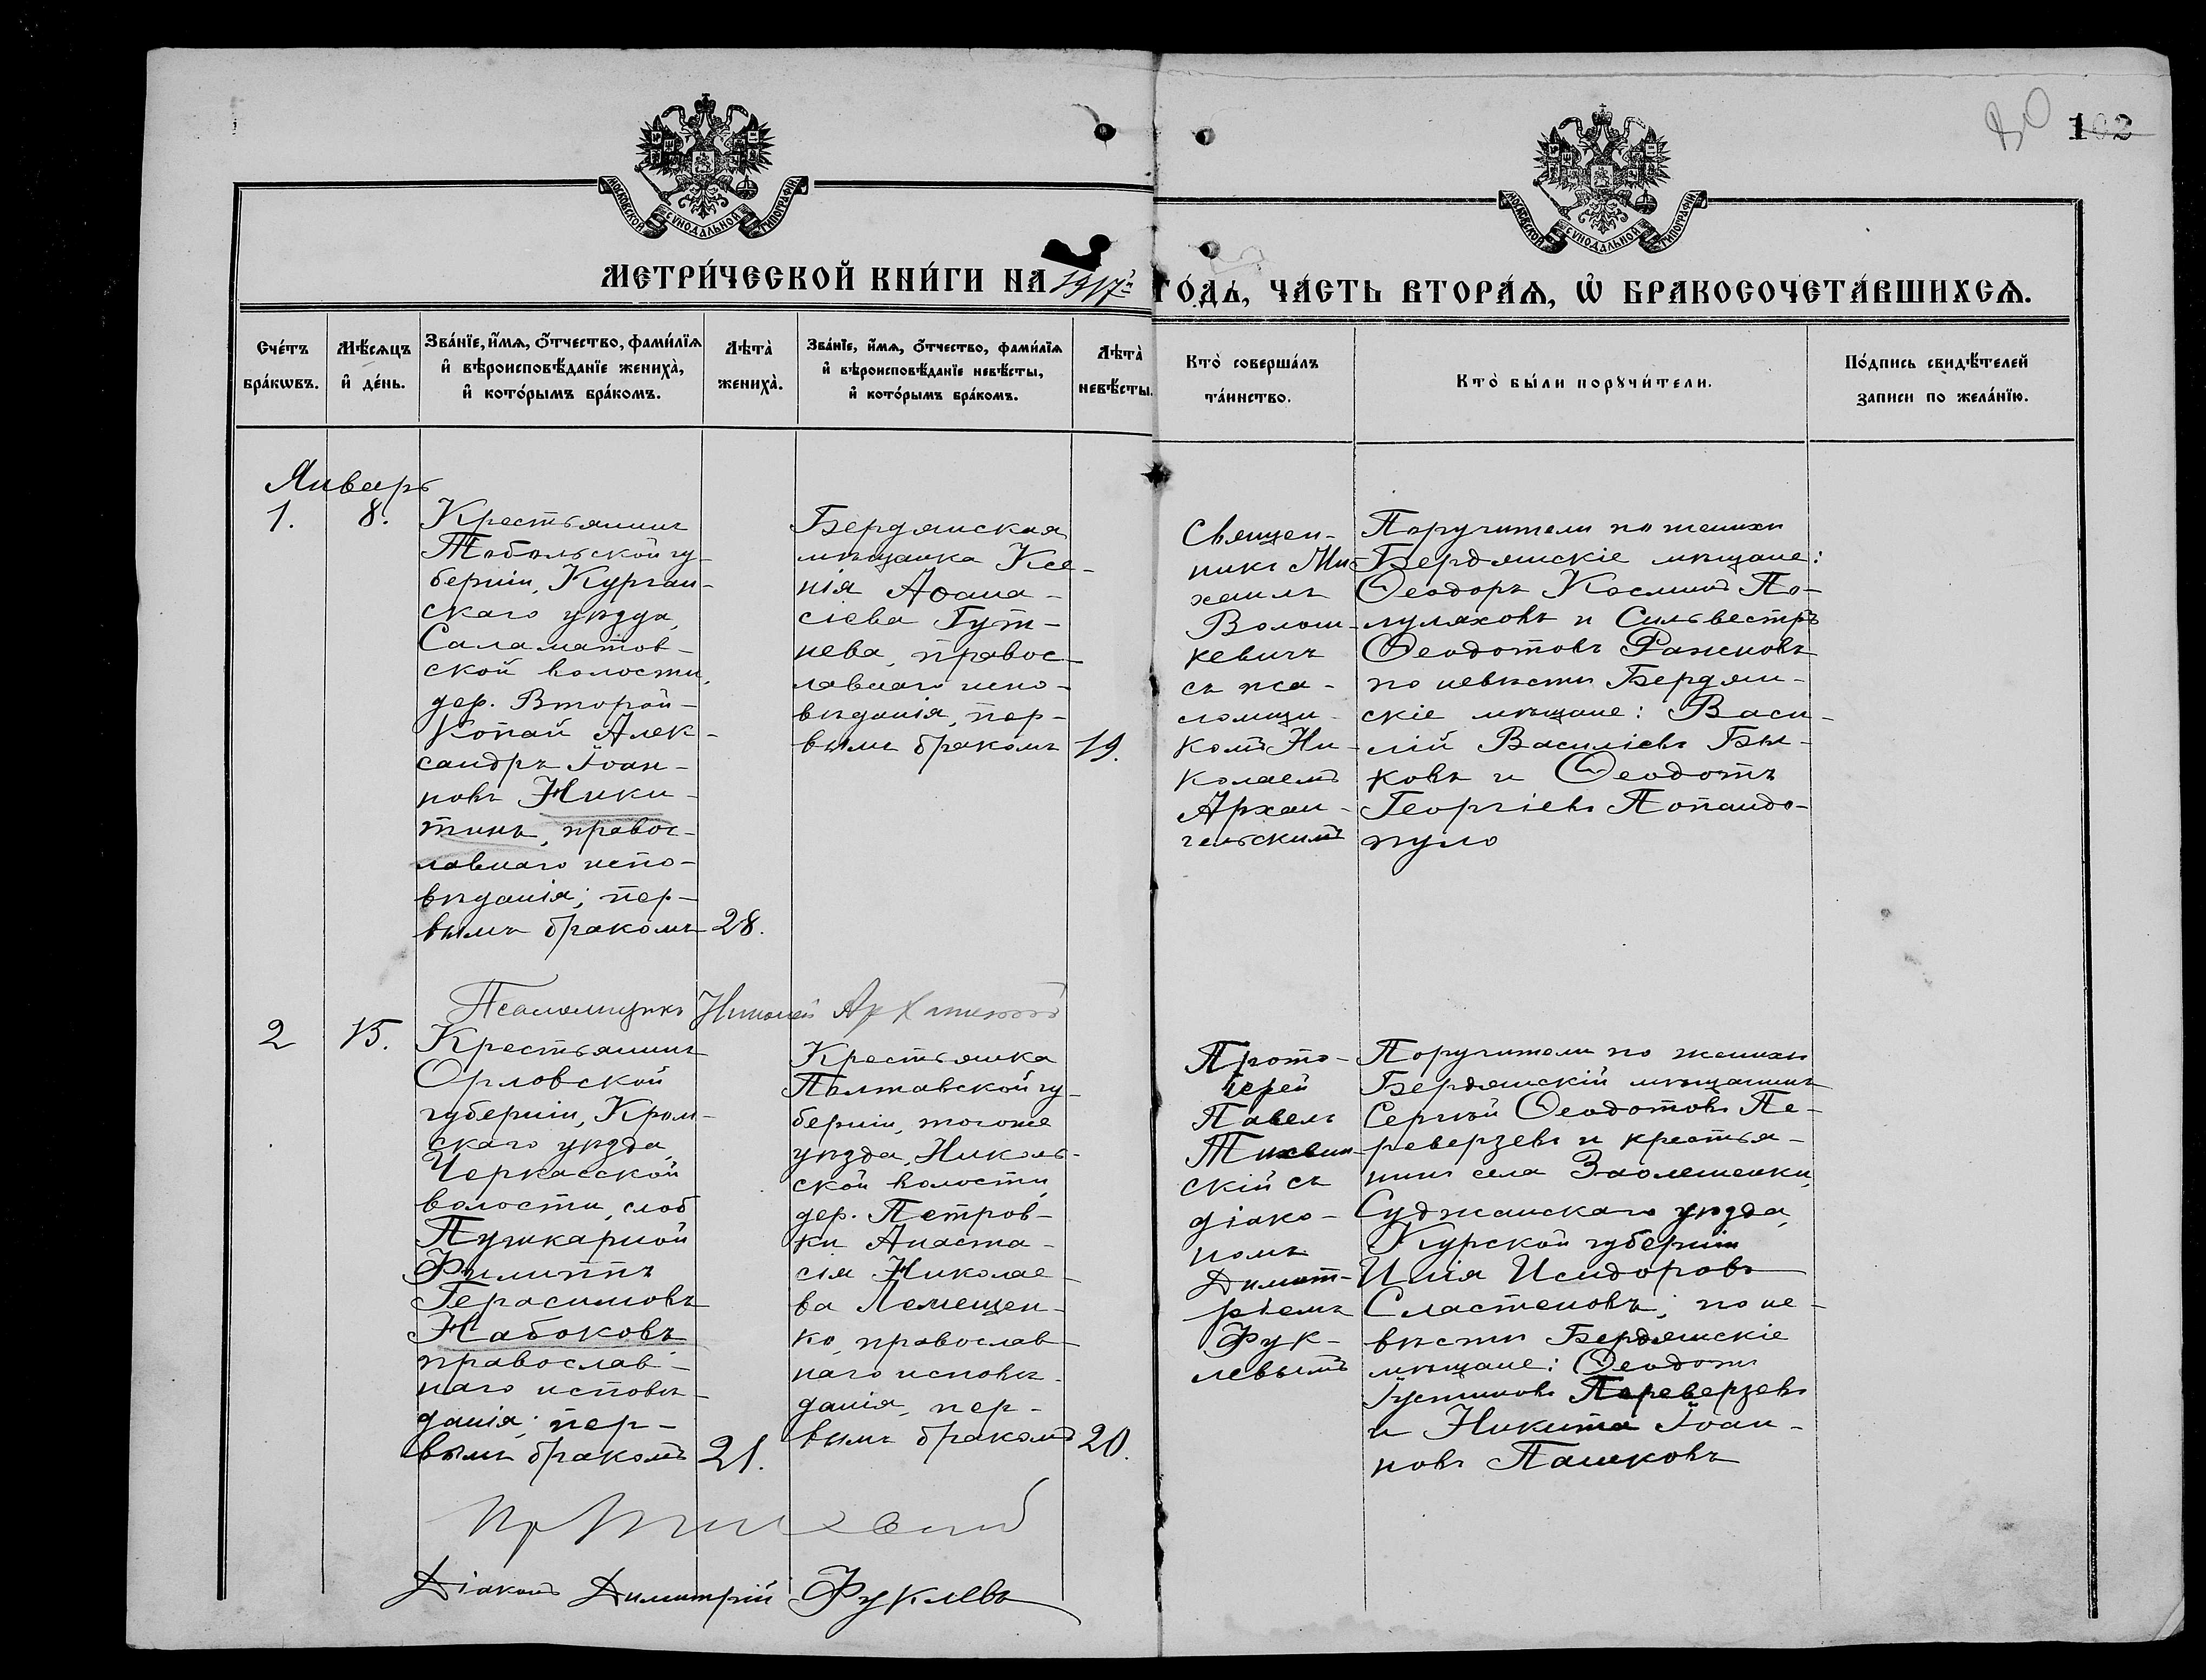 102
МОСКОВСКОЙ СУНОДАЛЬНОЙ ТИПОГРАФІИ
МОСКОВСКОЙ СУНОДАЛЬНОЙ ТИПОГРАФІИ
МЕТРИ́ЧЕСКОЙ КНИ́ГИ НА 1917й ГО́ДЪ, ЧА́СТЬ ВТОРА́Я, Ѡ БРАКОСОЧЕТА́ВШИХСЯ.
Сче́тъ бра́кѡвъ.
Мѣ́сяцъ и де́нь.
Зва́нїе, и́мя, ѻ҆́тчество, фами́лїя
и҆ вѣроисповѣ́данїе женихà,
и҆ кото́рымъ бра́комъ.
Лѣтà
женихà.
Зва́нїе, и́мя, ѻ҆́тчество, фами́лїя
и҆ вѣроисповѣ́данїе невѣ́сты,
и҆ кото́рымъ бра́комъ.
Лѣтà
невѣ́сты.
Ктò соверша́лъ
та́инство.
Ктò бы́ли порꙋчи́тели.
По́дпись свидѣ́телей
записи по жела́нїю.
Январь
1.
8.
Крестьянинъ
Тобольской гу-
берніи, Курган-
скаго уѣзда,
Саламатов-
ской волости,
дер. Второй-
Копай Алек-
сандръ Іоан-
новъ Ники-
тинъ, правос-
лавнаго испо-
вѣданія; пер-
вымъ бракомъ
28.
Бердянская
мѣщанка Ксе-
нія Аѳана-
сіева Гут-
нева, правос-
лавнаго испо-
вѣданія, пер-
вымъ бракомъ
19.
Священ-
никъ Ми-
хаилъ
Волош-
кевичъ
съ пса-
ломщи-
комъ Ни-
колаемъ
Архан-
гельскимъ
Поручители по женихѣ
Бердянскіе мѣщане:
Ѳеодоръ Косминъ По-
луляховъ и Сильвестръ
Ѳеодотовъ Ражновъ
по невѣстѣ Бердян-
скіе мѣщане: Васи-
лій Василіевъ Бы-
ковъ и Ѳеодотъ
Георгіевъ Попандо-
пуло
Псаломщикъ Николай
2
15.
Крестьянинъ
Орловской
губерніи, Кром-
скаго уѣзда,
Черкасской
волости, слоб
Пушкарной
Филиппъ
Герасимовъ
Набоковъ
православ-
наго исповѣ-
данія; пер-
вымъ бракомъ
21.
Крестьянка
Полтавской гу-
берніи, тогоже
уѣзда, Николь-
ской волости,
дер. Петров-
ки Анаста-
сія Николае-
ва Лемещен-
ко, православ-
наго исповѣ-
данія, пер-
вымъ бракомъ
20.
Прото-
іерей
Павелъ
Тихвин-
скій съ
діако-
номъ
Димит-
ріемъ
Фук-
левымъ
Поручители по женихѣ
Бердянскій мѣщанинъ
Сергѣй Ѳеодотовъ Пе-
реверзевъ и крестья-
нинъ села Заолешенки,
Суджанскаго уѣзда,
Курской губерніи
Илія Исидоровъ
Сластеновъ; по не-
вѣстѣ Бердянскіе
мѣщане: Ѳеодотъ
Іустиновъ Переверзевъ
и Никита Іоан-
новъ Пашковъ
Діаконъ Димитрій Фуклевъ